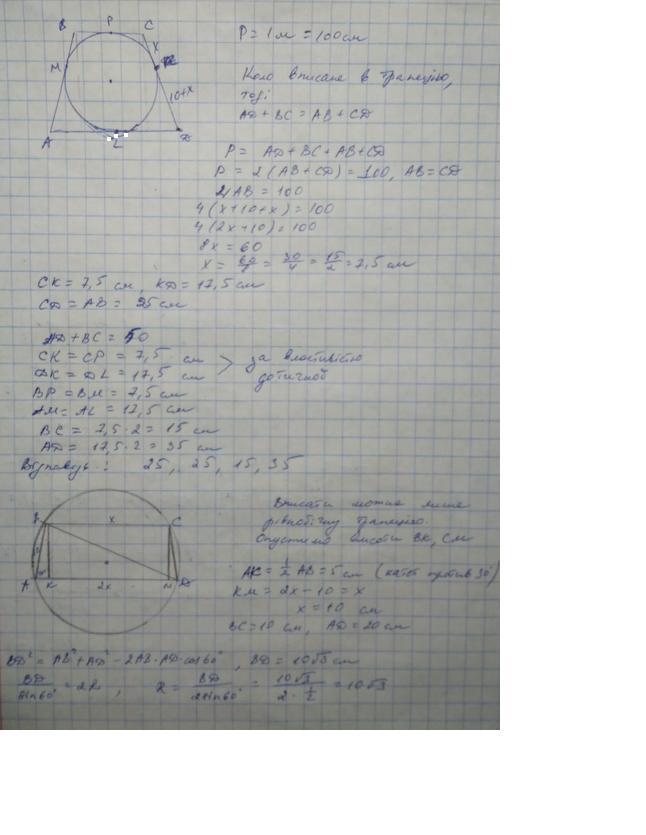 B P C
P = 1 м = 100 см
x
M
Коло вписане в трапецію,
10+x
тоді
AD + BC = AB + CD
A L D
P = AD + BC + AB + CD
P = 2(AB + CD) = 100, AB = CD
AB = 100
4(x+10+x) = 100
4(2x+10) = 100
8x = 60
x = 60/8 = 30/4 = 15/2 = 7,5 см
CK = 7,5 см, KD = 17,5 см
CD = AB = 25 см
AD + BC = 50
CK = CP = 7,5 см
DK = DL = 17,5 см
> за властивістю
дотичної
BP = BM = 7,5 см
AM = AL = 17,5 см
BC = 7,5·2 = 15 см
AD = 17,5·2 = 35 см
Відповідь: 25, 25, 15, 35
B x C
A K 2x M D
Вписати можна лише
рівнобічну трапецію.
Опустимо висоти BK, CM
AK = 1/2 AB = 5 см (катет против 30°)
KM = 2x - 10 = x
x = 10 см
BC = 10 см, AD = 20 см
BD² = AB² + AD² - 2AB·AD·cos60°, BD = 10√3 см
BD/sin60° = 2R, R = BD/2sin60° = 10√3/2·1/2 = 10√3